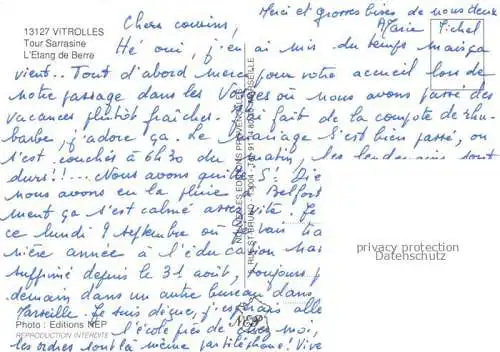 13127 VITROLLES
Tour Sarrasine
L'Etang de Berre
Merci et grosses bises de nous deux
Marie Michel
Chers cousins,
Hé oui, j'en ai mis du temps mais ça
vient.. Tout d'abord merci pour votre accueil lors de
notre passage dans les Vosges où nous avons passé des
vacances plutôt fraîches. J'ai fait de la compote de rhu-
barbe, j'adore ça. Le mariage s'est bien passé, on
s'est couchés à 6h30 du matin, les lendemains sont
durs!!... Nous avons quitté St Dié
nous avons eu la pluie à Belfort
ment ça s'est calmé assez vite. Je
ce lundi 9 septembre où je vais
nière année à l'éducation
supprimé depuis le 31 août, toujours
demain dans un autre bureau dans
Marseille. Je suis déçue, j'espérais
l'école près de chez moi,
les ordres sont là même par téléphone! Vive
privacy protection
Datenschutz
Photo : Editions NEP
REPRODUCTION INTERDITE
NEP